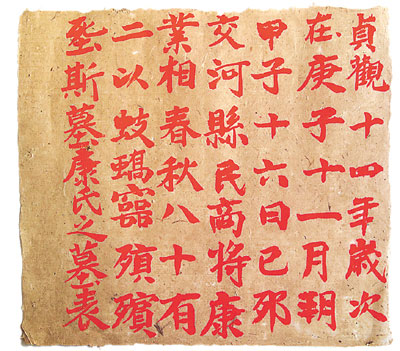 貞觀十四年歲次
在庚子十一月朔
甲子十六日已邜
交河縣民商將康
業相春秋八十有
二以蚑殞殯
斯墓康氏之墓表